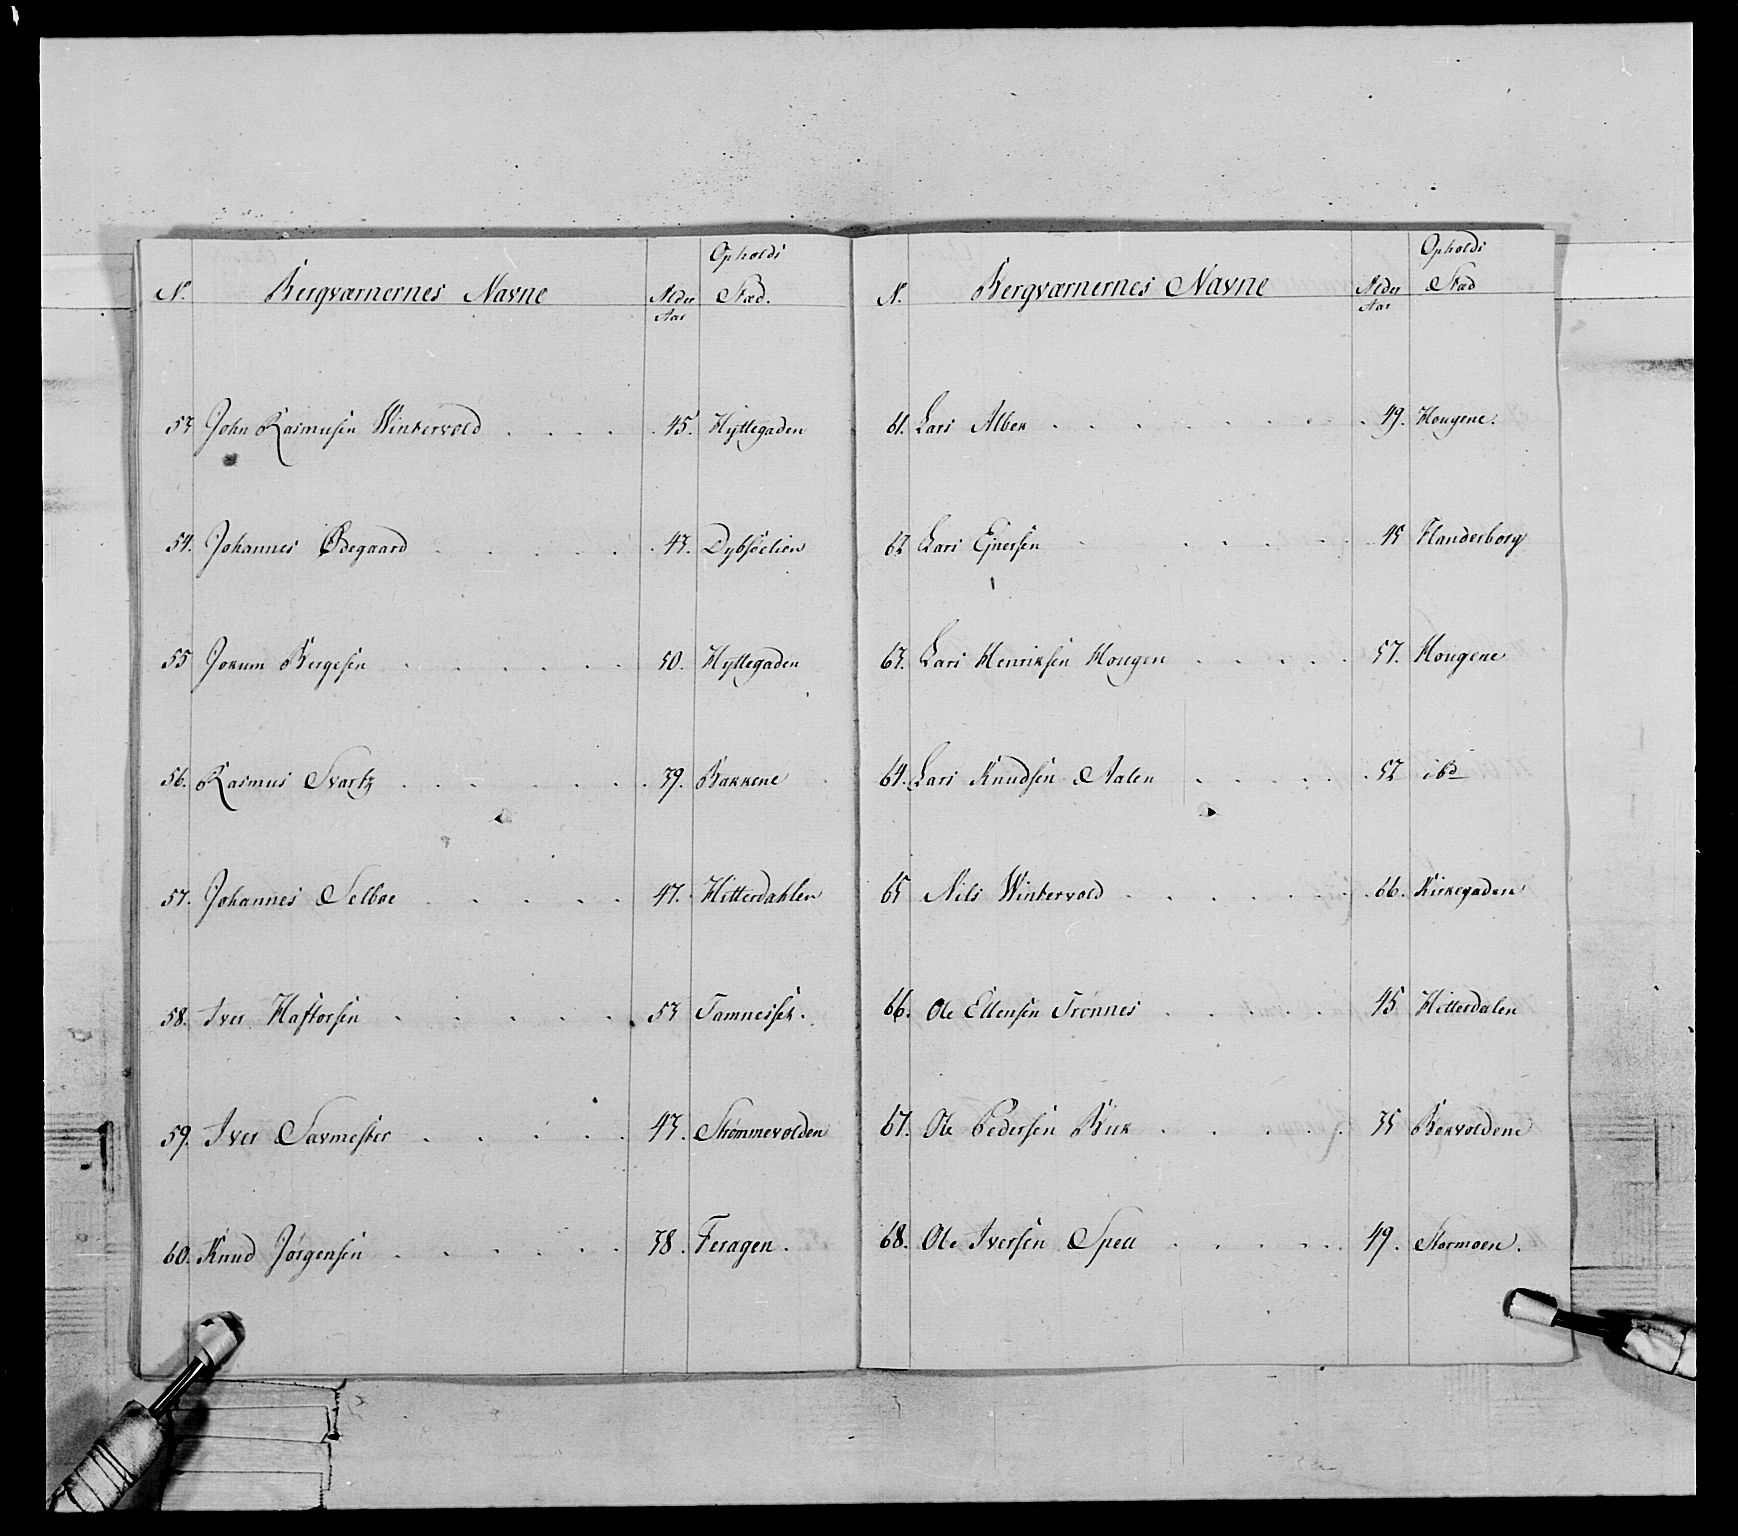 Opholds
N. Bergværnernes Navne Alder Stæd.
Aar
53 John Rasmusen Wintervold . . . . . 45. Hyttegaden
54. Johannes Ødegaard . . . . . . 43. Dybsöelien
55 Jokum Bergesen . . . . . . 50. Hyttegaden
56. Rasmus Svartz . . . . . . . 39. Bakkene
57. Johannes Selboe . . . . . 47. Hitterdahlen
58. Iver Haftorsen . . . . . . 53 Tamnesset.
59. Iver Savmester . . . . . 43. Strømmevolden
60. Knud Jørgensen . . . . . . 38. Feragen.
Opholds
N. Bergværnernes Navne Alder Stæd
Aar
61. Lars Albek . . . . . . . . 49. Hougene.
62 Lars Ejnersen . . . . . . 45 Flanderborg
63. Lars Henriksen Hougen . . . . . 57. Hougene
64. Lars Knudsen Aalen . . . . . 52 ibd
65 Nils Wintervold . . . . . . . 66. Kirkegaden
66. Ole Ellensen Trønnes . . . . . 45 Hitterdalen
67. Ole Pedersen Buk . . . . . 35 Bekvoldene
68. Ole Iversen Spell . . . . . 49. Stormoen.